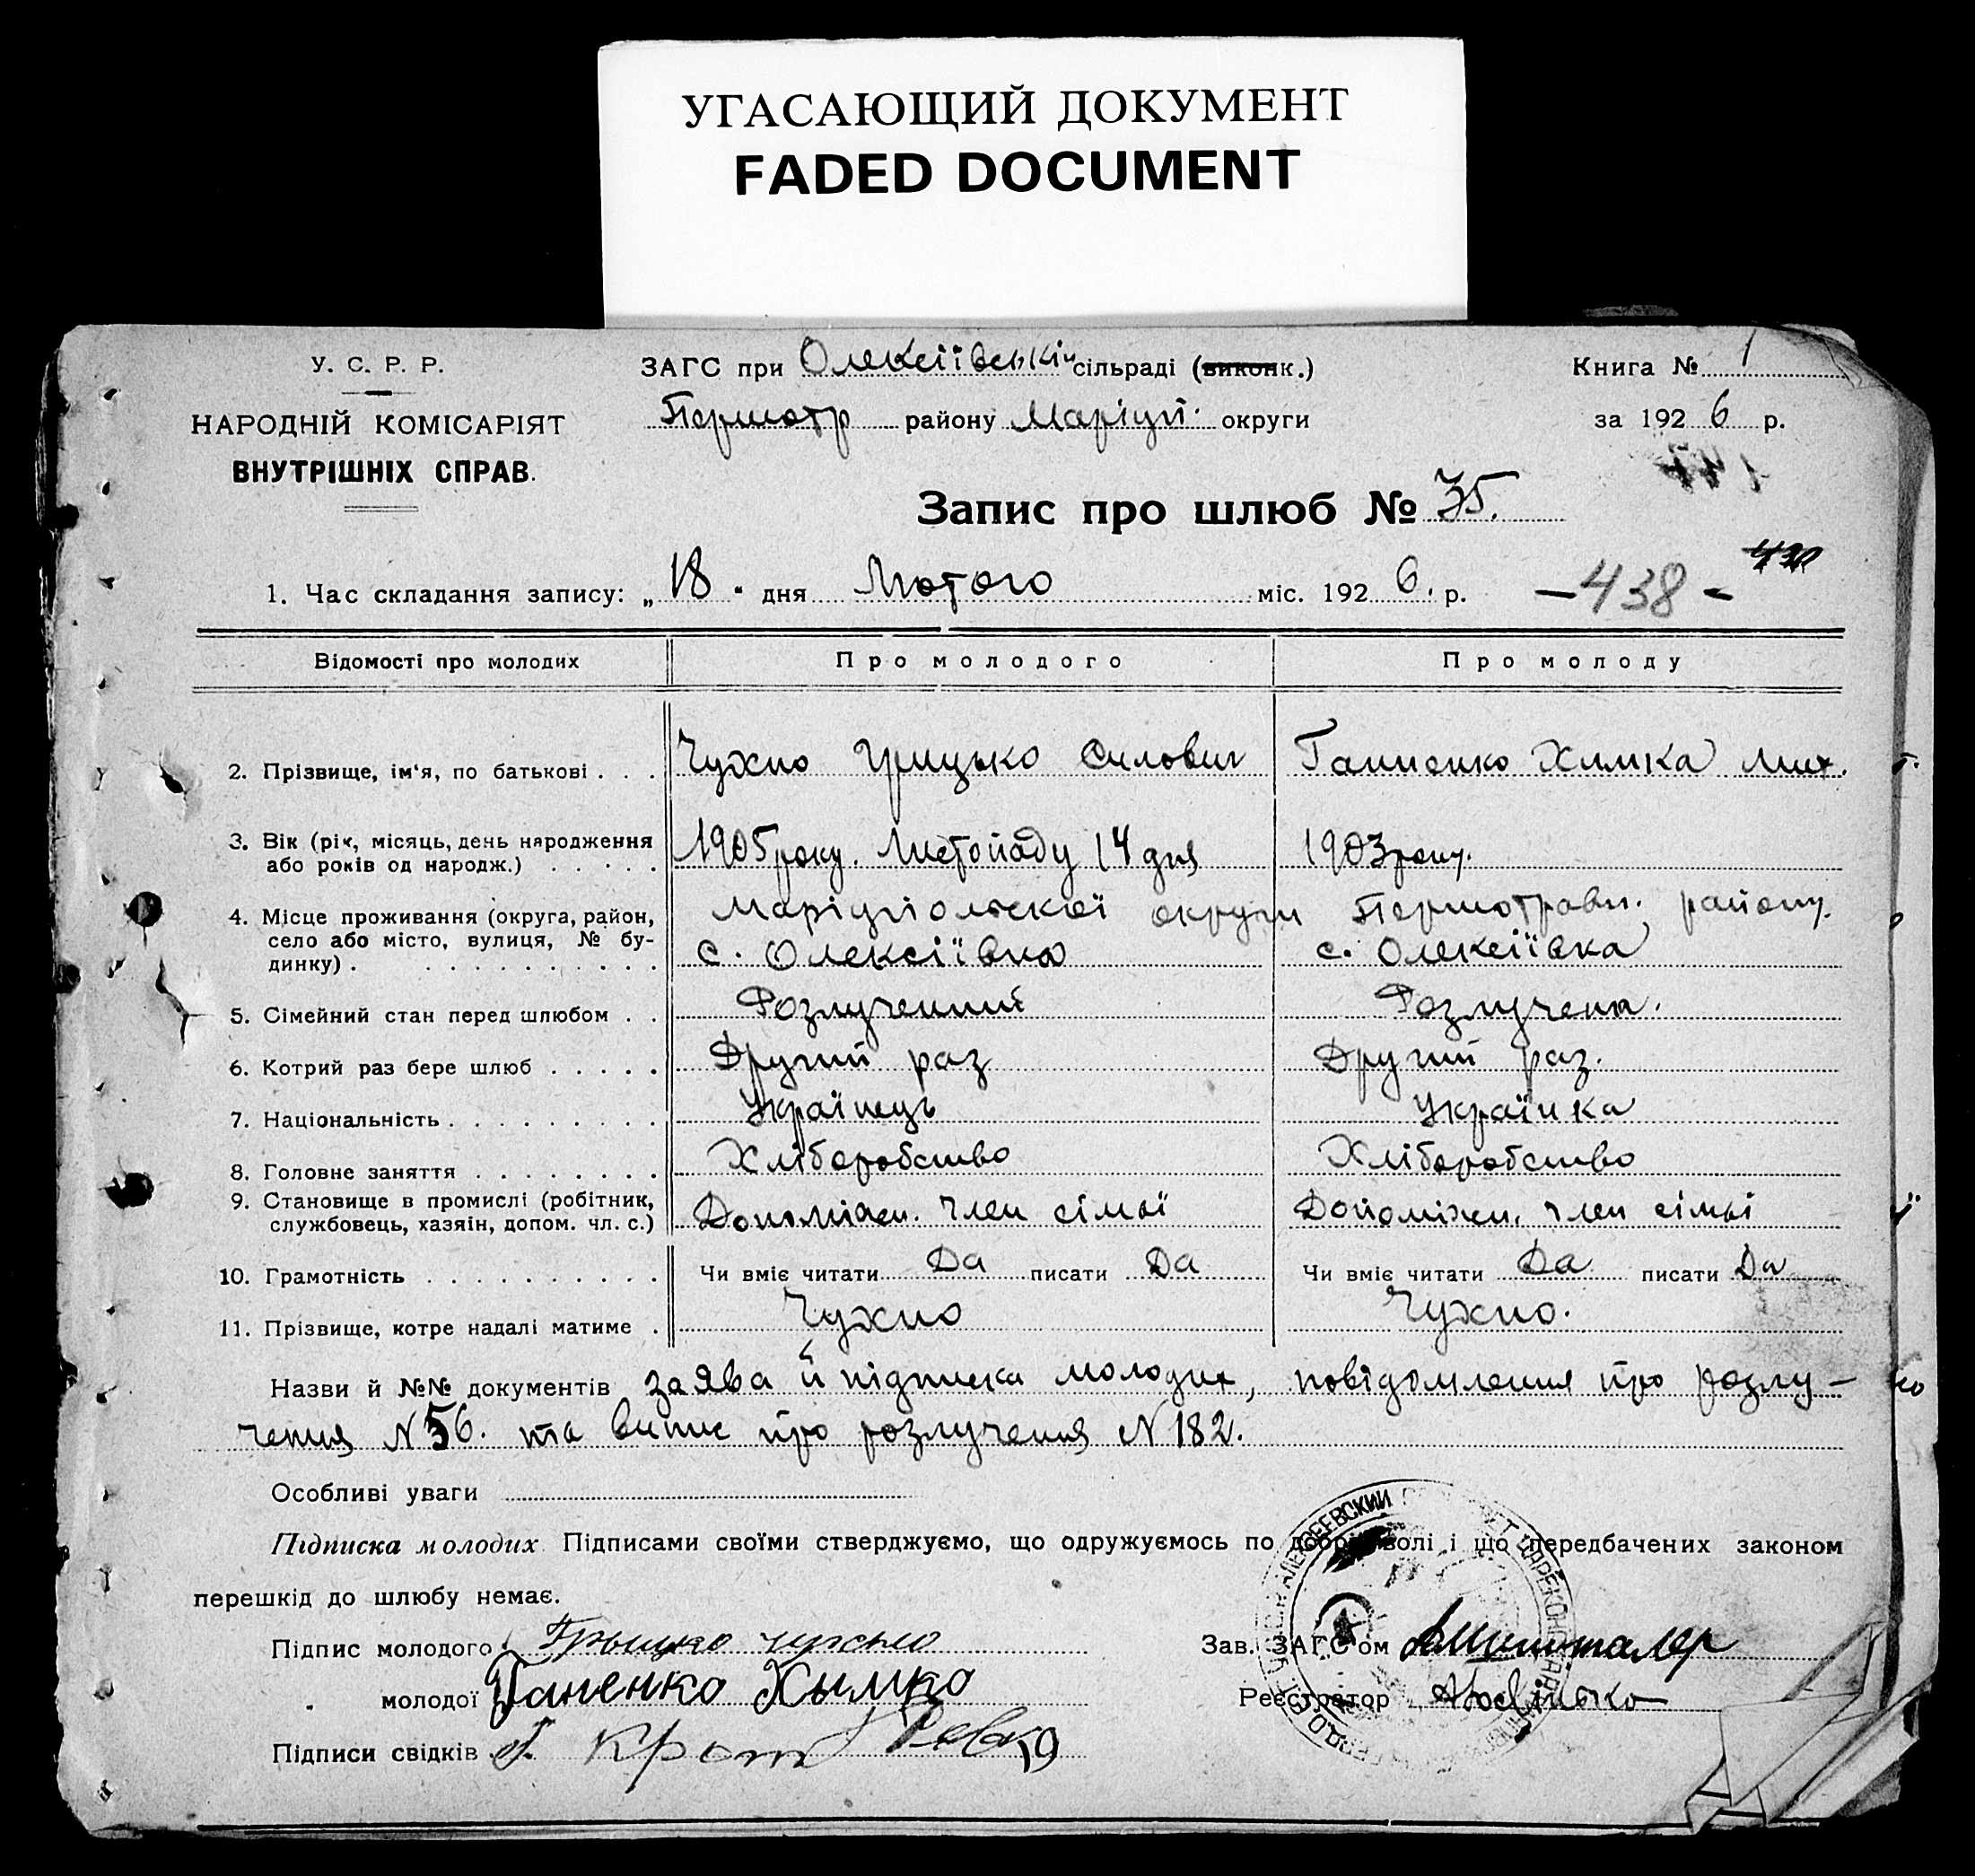 УГАСАЮЩИЙ ДОКУМЕНТ
FADED DOCUMENT
У. С. Р. Р.
НАРОДНІЙ КОМІСАРІЯТ
ВНУТРІШНІХ СПРАВ.
ЗАГС при Олексіївській сільраді (виконк.)
Першотр району Маріуп. округи
Книга № 1
за 1926 р.
Запис про шлюб № 35.
1. Час складання запису: „18" дня Лютого міс. 1926. р.
-438-
Відомості про молодих Про молодого Про молоду
2. Прізвище, ім'я, по батькові . . . Чухно Грицько Силович Ганненко Химка Мих.
3. Вік (рік, місяць, день народження
або років од народж.) . . . . . 1905 року. Листопаду 14 дня 1903 року.
4. Місце проживання (округа, район, Маріупіольскої округи Першотравн. району.
село або місто, вулиця, № бу- с. Олексіївка с. Олексіївка
динку) . . . . . . . . . . . .
5. Сімейний стан перед шлюбом . . Розлучений Розлучена.
6. Котрий раз бере шлюб . . . . . Другий раз Другий раз.
7. Національність . . . . . . . . . Українець Українка
8. Головне заняття . . . . . . . . Хліборобство Хліборобство
9. Становище в промислі (робітник,
службовець, хазяїн, допом. чл. с.) Допоміжн. член сімьї Допоміжн. член сімьї
10. Грамотність . . . . . . . . . . Чи вміє читати Да писати Да Чи вміє читати Да писати Да
11. Прізвище, котре надалі матиме . Чухно Чухно.
Назви й №№ документів заява й підписка молодих, повідомлення про розлу-
чення N 56. та випис про розлучення N 182.
Особливі уваги
Підписка молодих Підписами своїми стверджуємо, що одружуємось по добрій волі і що передбачених законом
перешкід до шлюбу немає.
Підпис молодого Грыцко Чухно
Зав. ЗАГС'ом
" молодої Ганенко Хымко
Реєстратор
Підписи свідків Крот